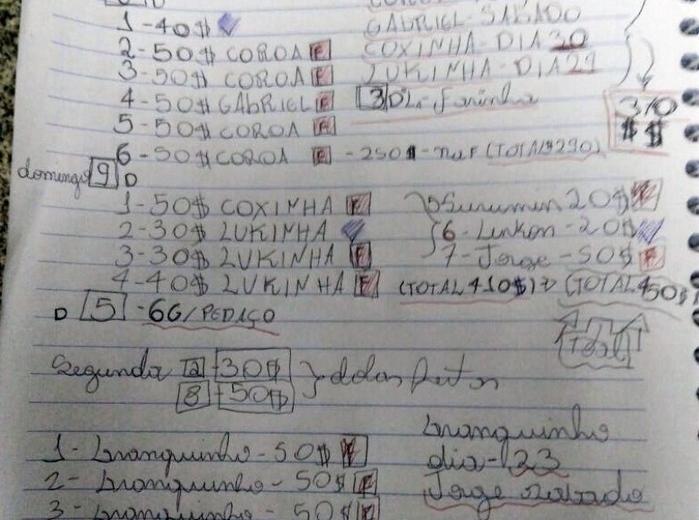 GABRIEL-SABADO
1-40$
2-50$ COROA F COXINHA-DIA 30
3-50$ COROA F LUKINHA-DIA 21
4-50$ GABRIEL F 3 D
5-50$ COROA F 310
$ $
6-50$ COROA F -250$- (TOTAL$290)
domingo 9 D
1-50$ COXINHA F 5 Surumin 20$ F
2-30$ LUKINHA 6-Linkon-20$
3-30$ LUKINHA F 7-Jorge-50$ F
4-40$ LUKINHA F (TOTAL410$) (TOTAL450$)
D 5 -6G/PEDAÇO
(Total)
Segunda 2 -30$
8 -50$
1- branquinho-50$ F branquinho
dia-23
2- branquinho-50$ F Jorge sabado
3- branquinho-50$ F